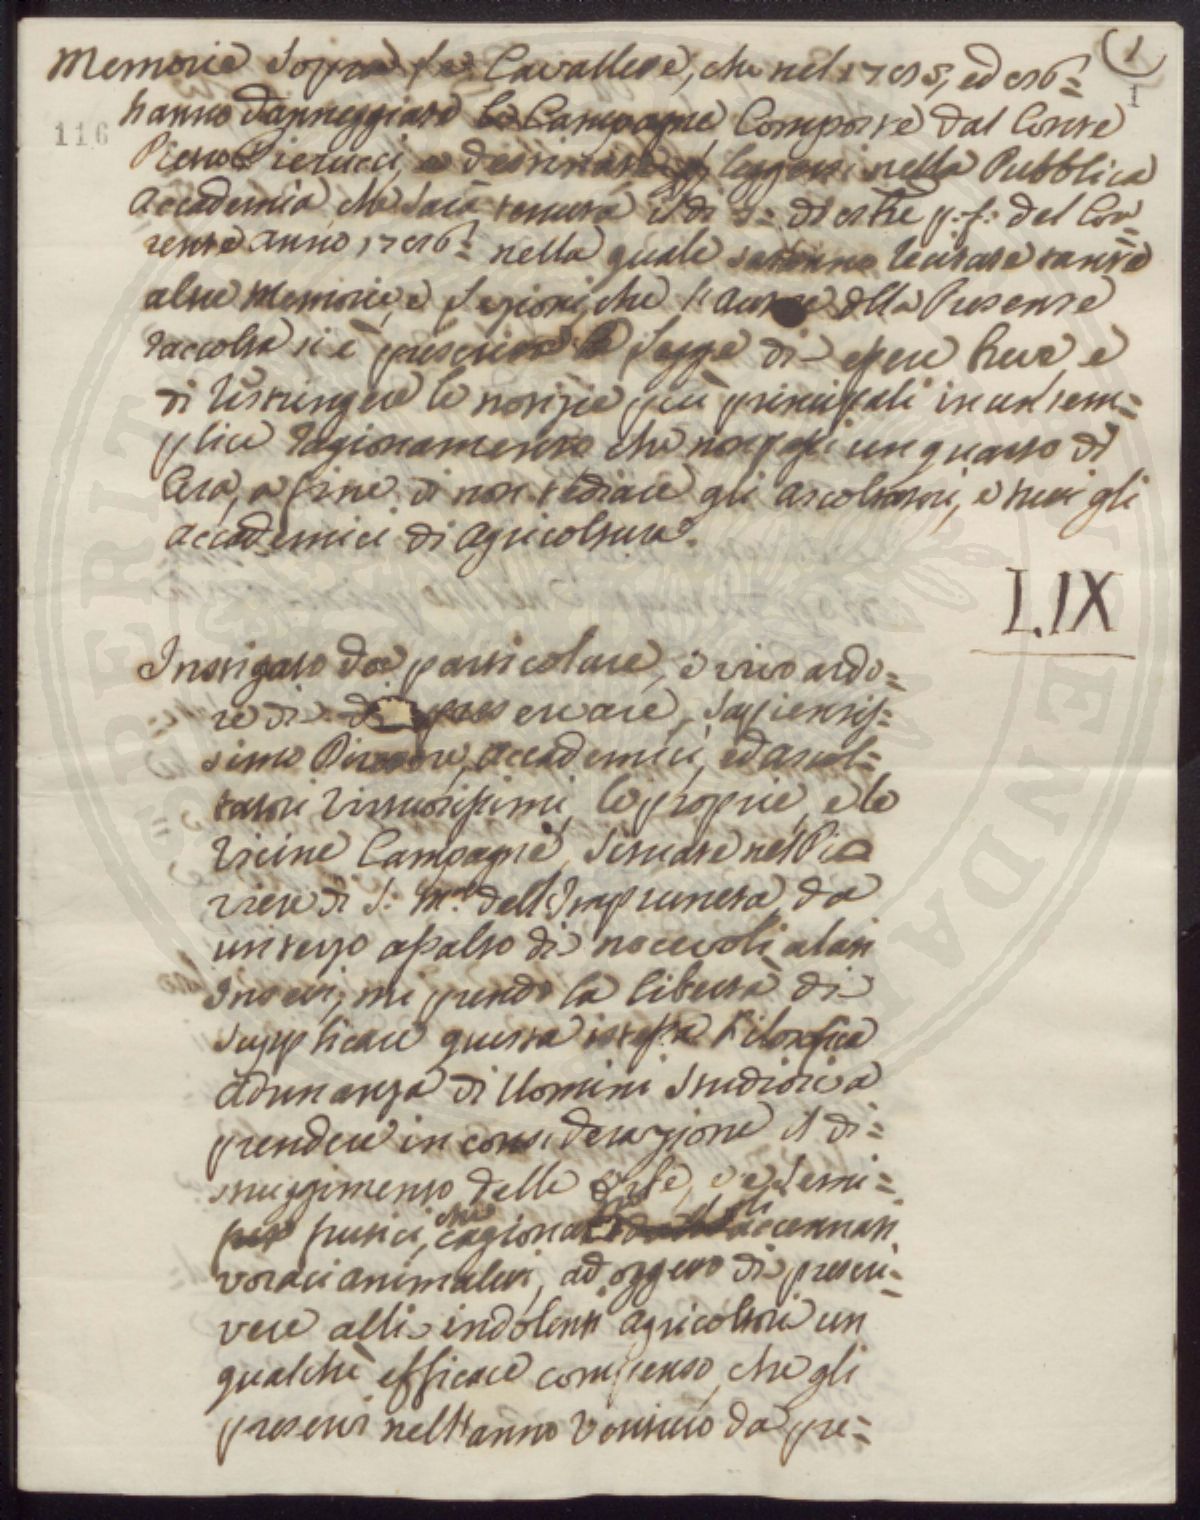 1
Memorie Sopra le Cavallete, che nel 1785, ed 86=
1
hanno danneggiato le Campagne, Composte dal Conte
116
Piero Pierucci, e destinate leggersi nella Pubblica
Accademia che sarà tenuta il dì di p.f: del Cor=
rente anno 1786= nella quale saranno recitate tante
altre Memorie, e Lezioni, che l'Autore della Presente
raccolta si è prescritto la Legge di esser breve e
di restringere le notizie più principali in un sem=
plice ragionamento che non passi un quarto di
Ora, a fine di non tediare gli ascoltatori, e tutti gli
Accademici di Agricoltura.
LIX
Instigato da particolare, e vivo ardo=
re di preservare, Sapientis=
simo Direttore, Accademici, ed ascol=
tatori Virtuosissimi, le proprie, e le
Vicine Campagne, situate nel Pi
viere di S: M.ª dell'Impruneta da
un terzo assalto di nocevoli alati
Insetti, mi prendo la libertà di
supplicare questa istessa Filosofica
adunanza di Uomini Studiosi a
prendere in considerazione il di=
struggimento delle , e Semi=
fruttici, che cagiona gli accennati
voraci animaletti, ad oggetto di prescri=
vere alli indolenti agricoltori un
qualche efficace compenso, che gli
preservi nell'anno venturo da pre=